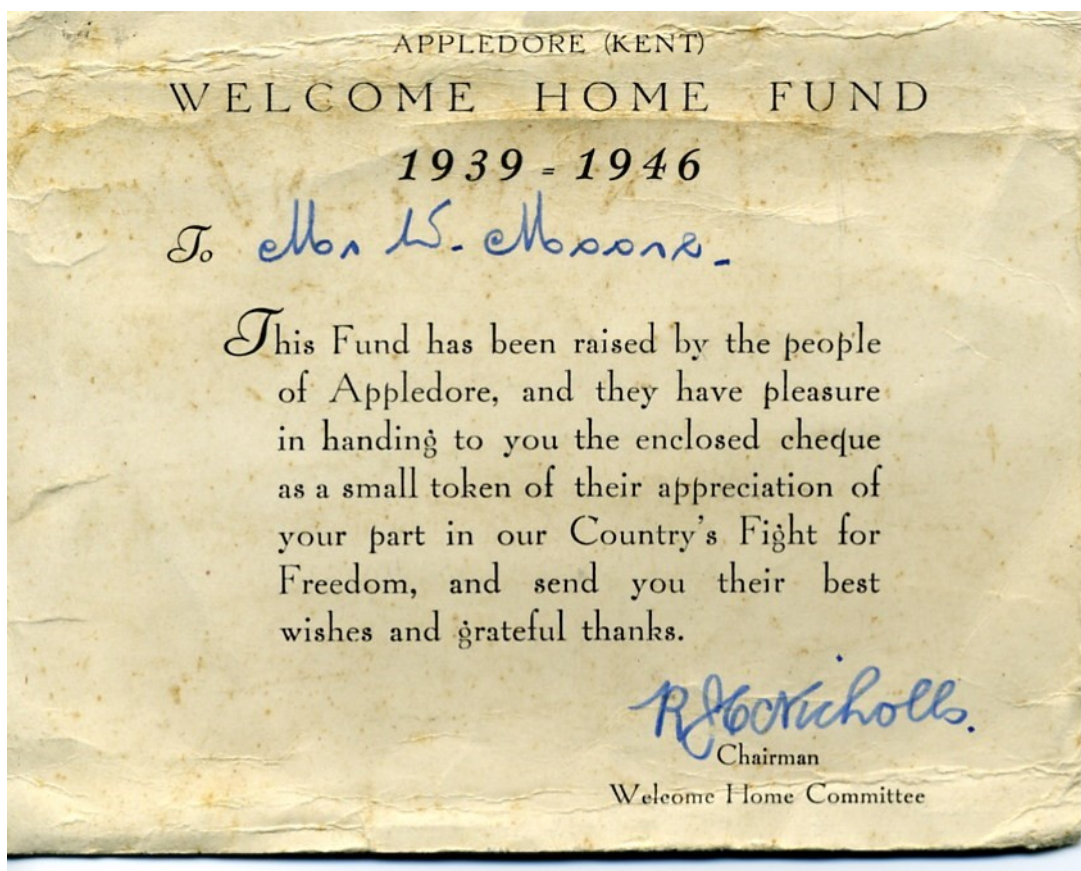 APPLEDORE (KENT)
WELCOME HOME FUND
1939 - 1946
To Mr W. Moore.
This Fund has been raised by the people
of Appledore, and they have pleasure
in handing to you the enclosed cheque
as a small token of their appreciation of
your part in our Country's Fight for
Freedom, and send you their best
wishes and grateful thanks.
Nicholls.
Chairman
Welcome Home Committee